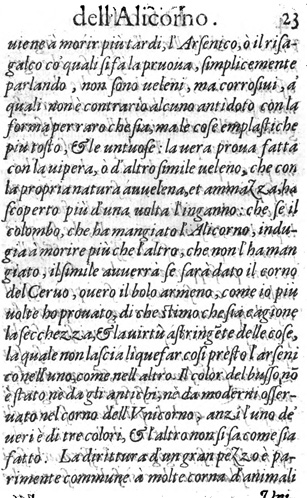 dell'Alicorno. 23
uiene à morir piu tardi, l'Arsenico, ò il risa-
galco cõ quali si fa la pruoua, simplicemente
parlando, non sono ueleni, ma corrosiui, a
quali non è contrario alcuno antidoto con la
forma per raro che sia, ma le cose emplastiche
piu tosto, & le untuose: la uera proua fatta
con la uipera, o d'altro simile ueleno, che con
la propria natura auuelena, et ammazza, ha
scoperto più d'una uolta l'inganno: che, se il
colombo, che ha mangiato l'Alicorno, indu-
gia à morire più che l'altro, che non l'ha man
giato, il simile auuerrà se sarà dato il corno
del Ceruo, ouero il bolo armeno, come io più
uolte ho prouato, di che stimo che sia cagione
la secchezza, & la uirtù astringẽte delle cose,
la quale non lascia liquefar cosi presto l'arseni
co nell'uno, come nell'altro. Il color del busso nõ
è stato ne da gli antichi, ne da moderni osser-
uato nel corno dell'Vnicorno, anzi l'uno de'
ueri è di tre colori, & l'altro non si sa come sia
fatto. La dirittura d'un gran pezzo è pa-
rimente commune a molte corna d'animali
Vni-